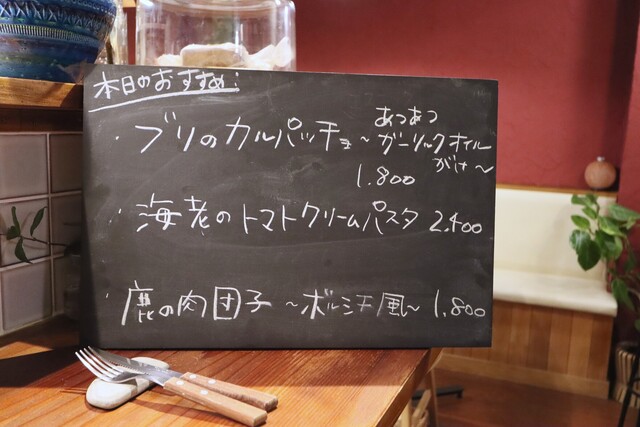 本日のおすすめ:
・ブリのカルパッチョ～あつあつガーリックオイルがけ～
1.800
・海老のトマトクリームパスタ 2.400
・鹿の肉団子 ～ボルシチ風～ 1.800